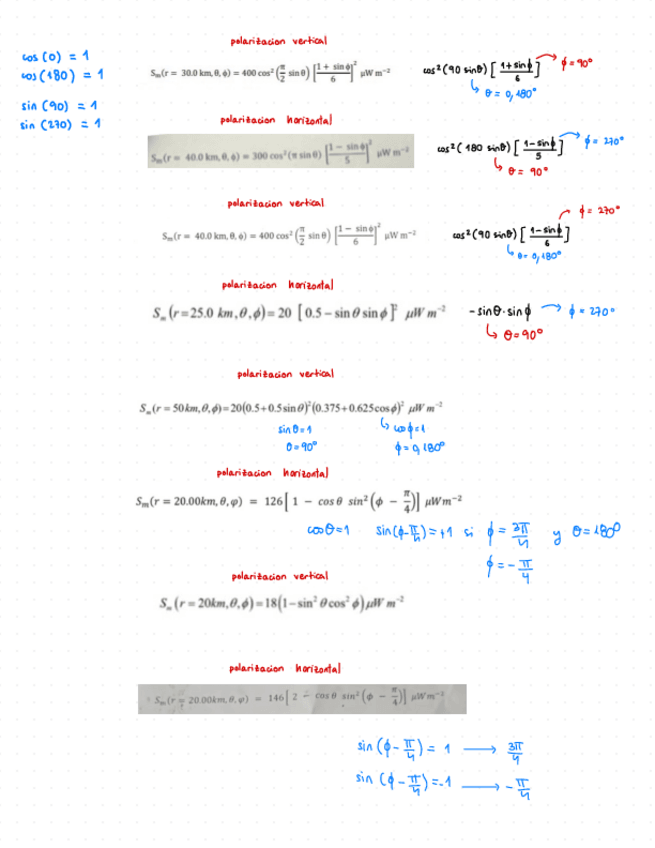 polarizacion vertical
cos (0) = 1
cos (180) = 1
sin (90) = 1
sin (270) = 1
S_m(r = 30.0 km, θ, ϕ) = 400 cos² (π/2 sin θ) [1 + sin ϕ / 6]² μW m⁻²
cos² (90 sinθ) [1+sinϕ / 6] → ϕ = 90°
↳ θ = 0, 180°
polarizacion horizontal
S_m(r = 40.0 km, θ, ϕ) = 300 cos² (π sin θ) [1 − sin ϕ / 5]² μW m⁻²
cos² (180 sinθ) [1-sinϕ / 5] → ϕ = 270°
↳ θ = 90°
polarizacion vertical
S_m(r = 40.0 km, θ, ϕ) = 400 cos² (π/2 sin θ) [1 − sin ϕ / 6]² μW m⁻²
ϕ = 270°
cos² (90 sinθ) [1-sinϕ / 6]
↳ θ = 0, 180°
polarizacion horizontal
S_m (r=25.0 km,θ,ϕ)=20 [0.5−sin θ sin ϕ]² μW m⁻²
-sinθ·sinϕ → ϕ = 270°
↳ θ=90°
polarizacion vertical
S_m (r = 50km,θ,ϕ)=20(0.5+0.5sin θ)²(0.375+0.625cos ϕ)² μW m⁻²
sin θ=1 ↳ cosϕ=1
θ=90° ϕ=0,180°
polarizacion horizontal
S_m(r = 20.00km, θ, φ) = 126[ 1 − cos θ sin² (ϕ − π/4)] μWm⁻²
cosθ=1 sin(ϕ-π/4)=+1 si ϕ = 3π/4 y θ=180°
ϕ = - π/4
polarizacion vertical
S_m (r = 20km,θ,ϕ)=18(1−sin² θ cos² ϕ) μW m⁻²
polarizacion horizontal
S_m(r = 20.00km, θ, φ) = 146[ 2 − cos θ sin² (ϕ − π/4)] μWm⁻²
sin (ϕ- π/4) = 1 → 3π/4
sin (ϕ - π/4) =-1 → - π/4